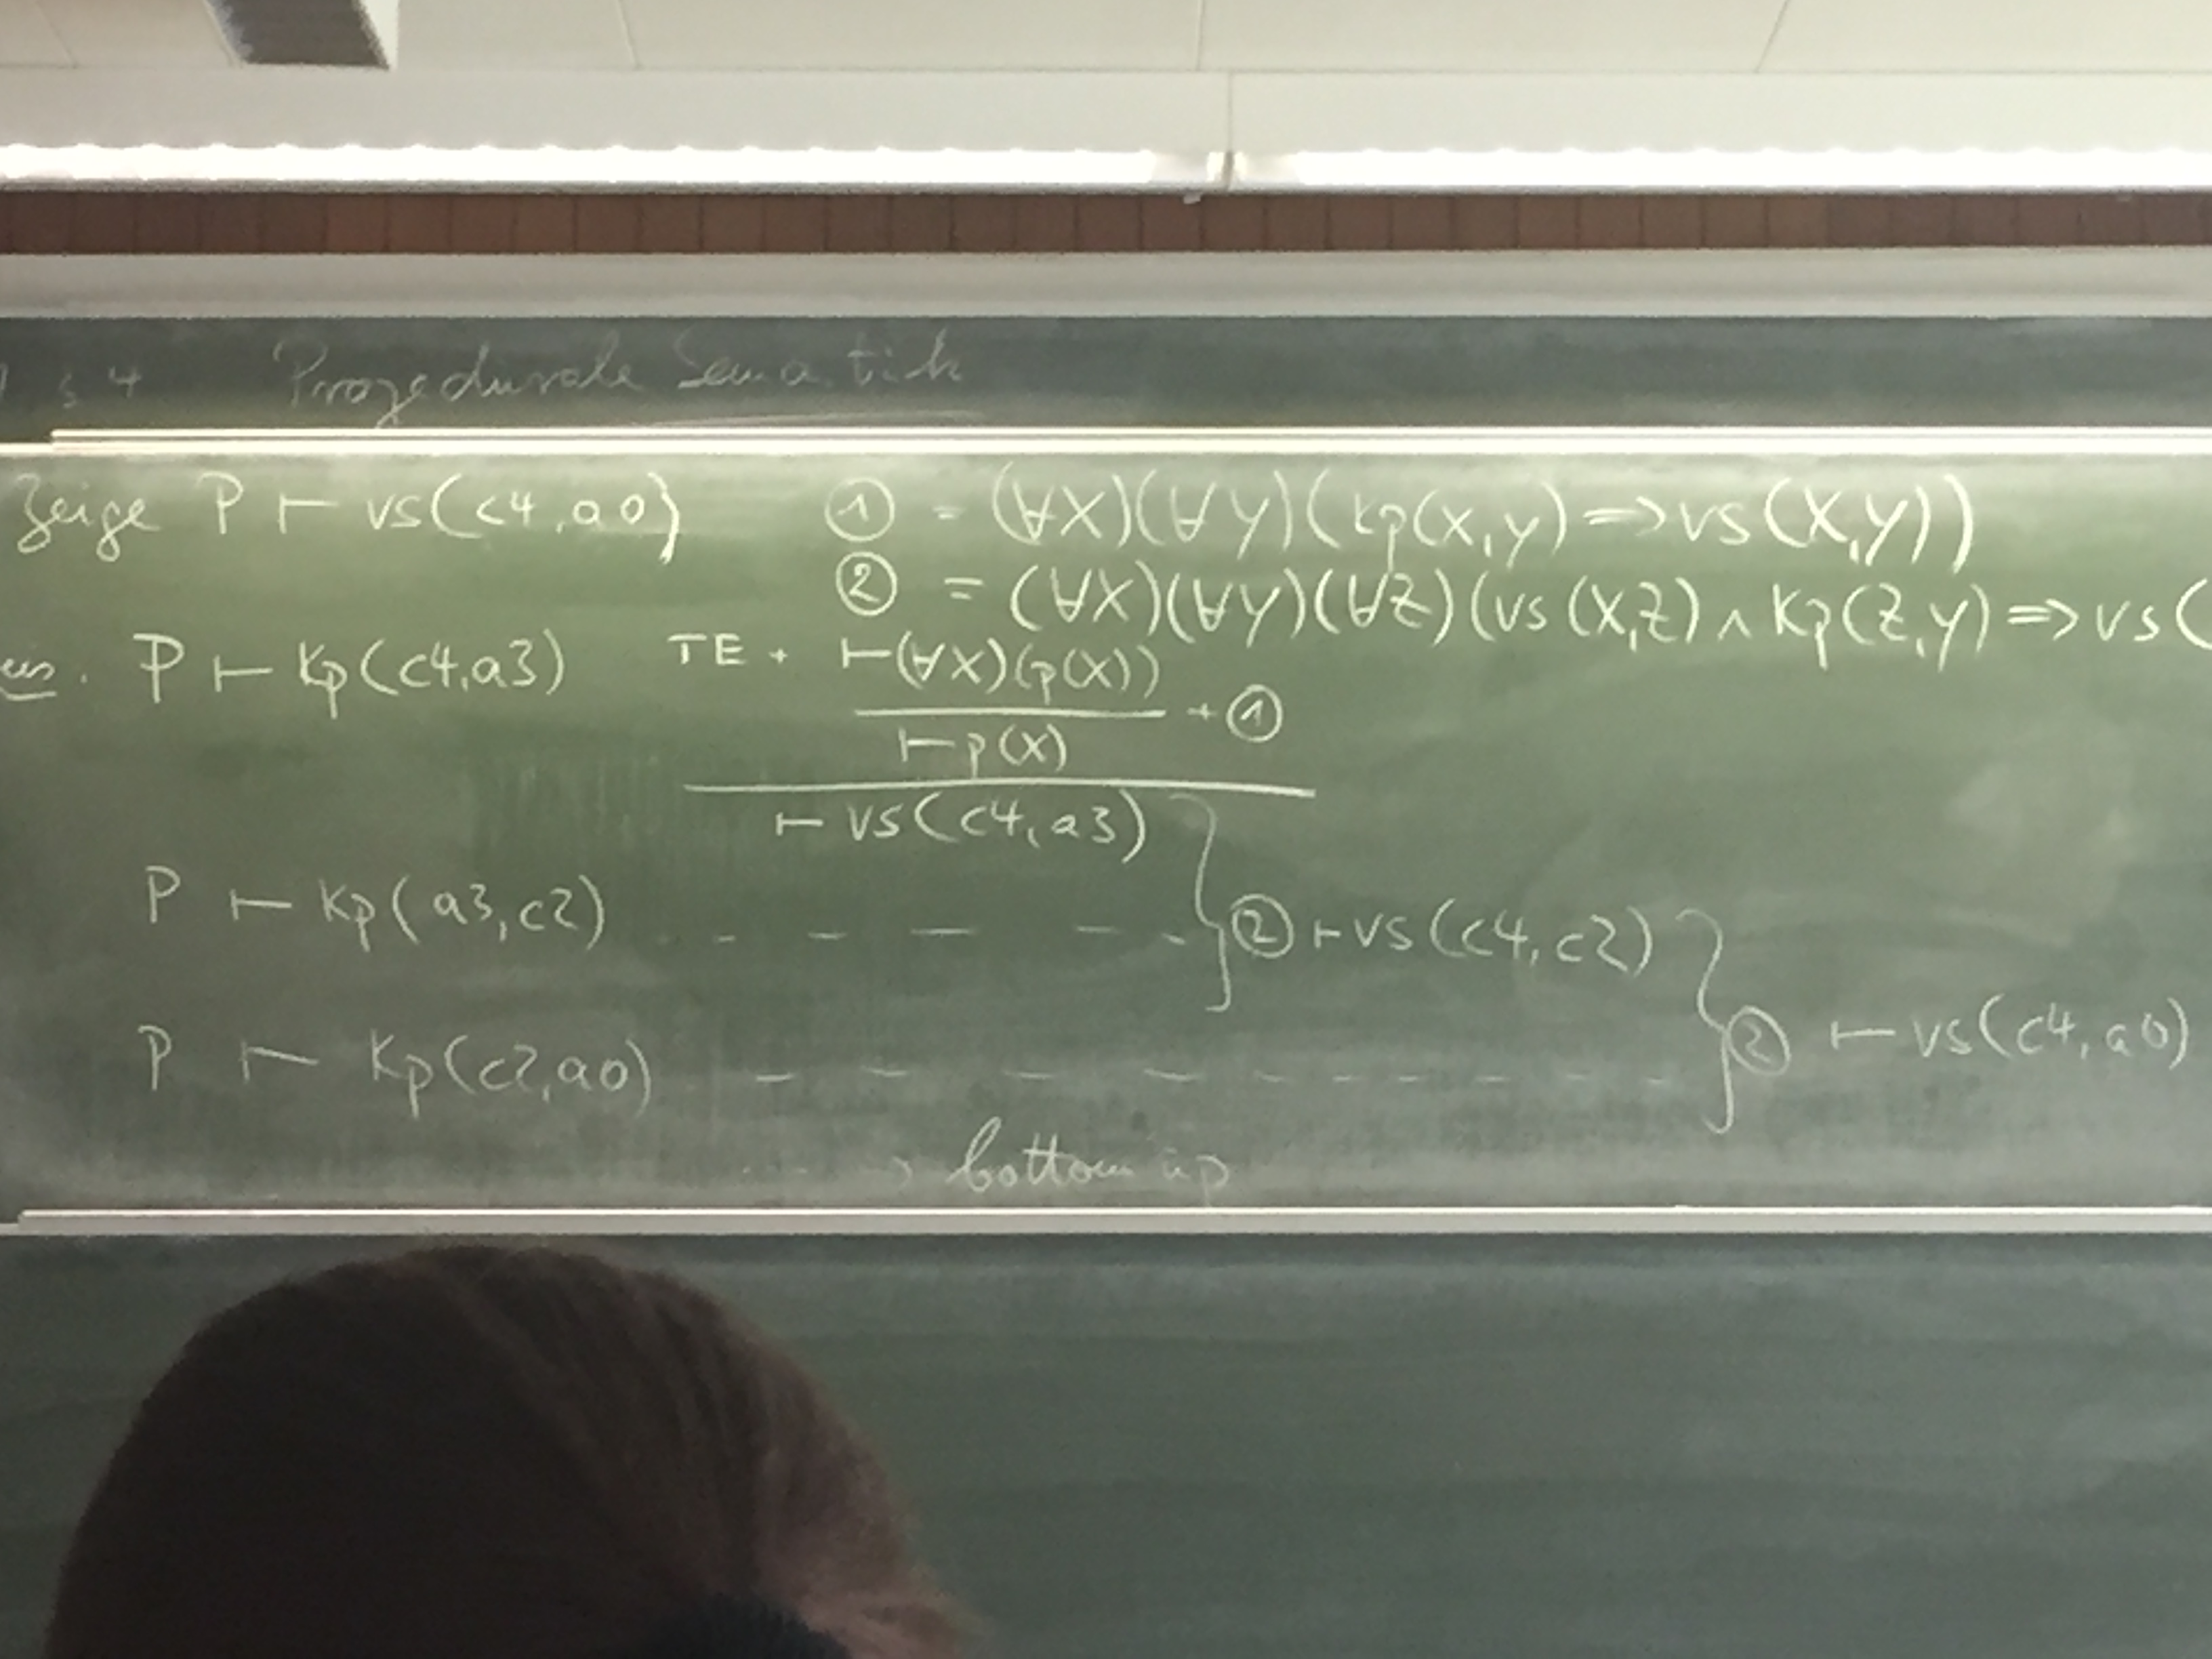 § 4 Prozedurale Semantik
Zeige P ⊢ vs(c4,a0) ① = (∀X)(∀Y)(kp(X,Y) => vs(X,Y))
② = (∀X)(∀Y)(∀Z)(vs(X,Z) ∧ kp(Z,Y) => vs(
P ⊢ kp(c4,a3) TE + ⊢(∀X)(p(X))
+ ①
⊢ p(X)
⊢ vs(c4,a3)
P ⊢ kp(a3,c2) - - - - - } ② ⊢ vs(c4,c2)
P ⊢ kp(c2,a0) - - - - - - - - - } ② ⊢ vs(c4,a0)
bottom up